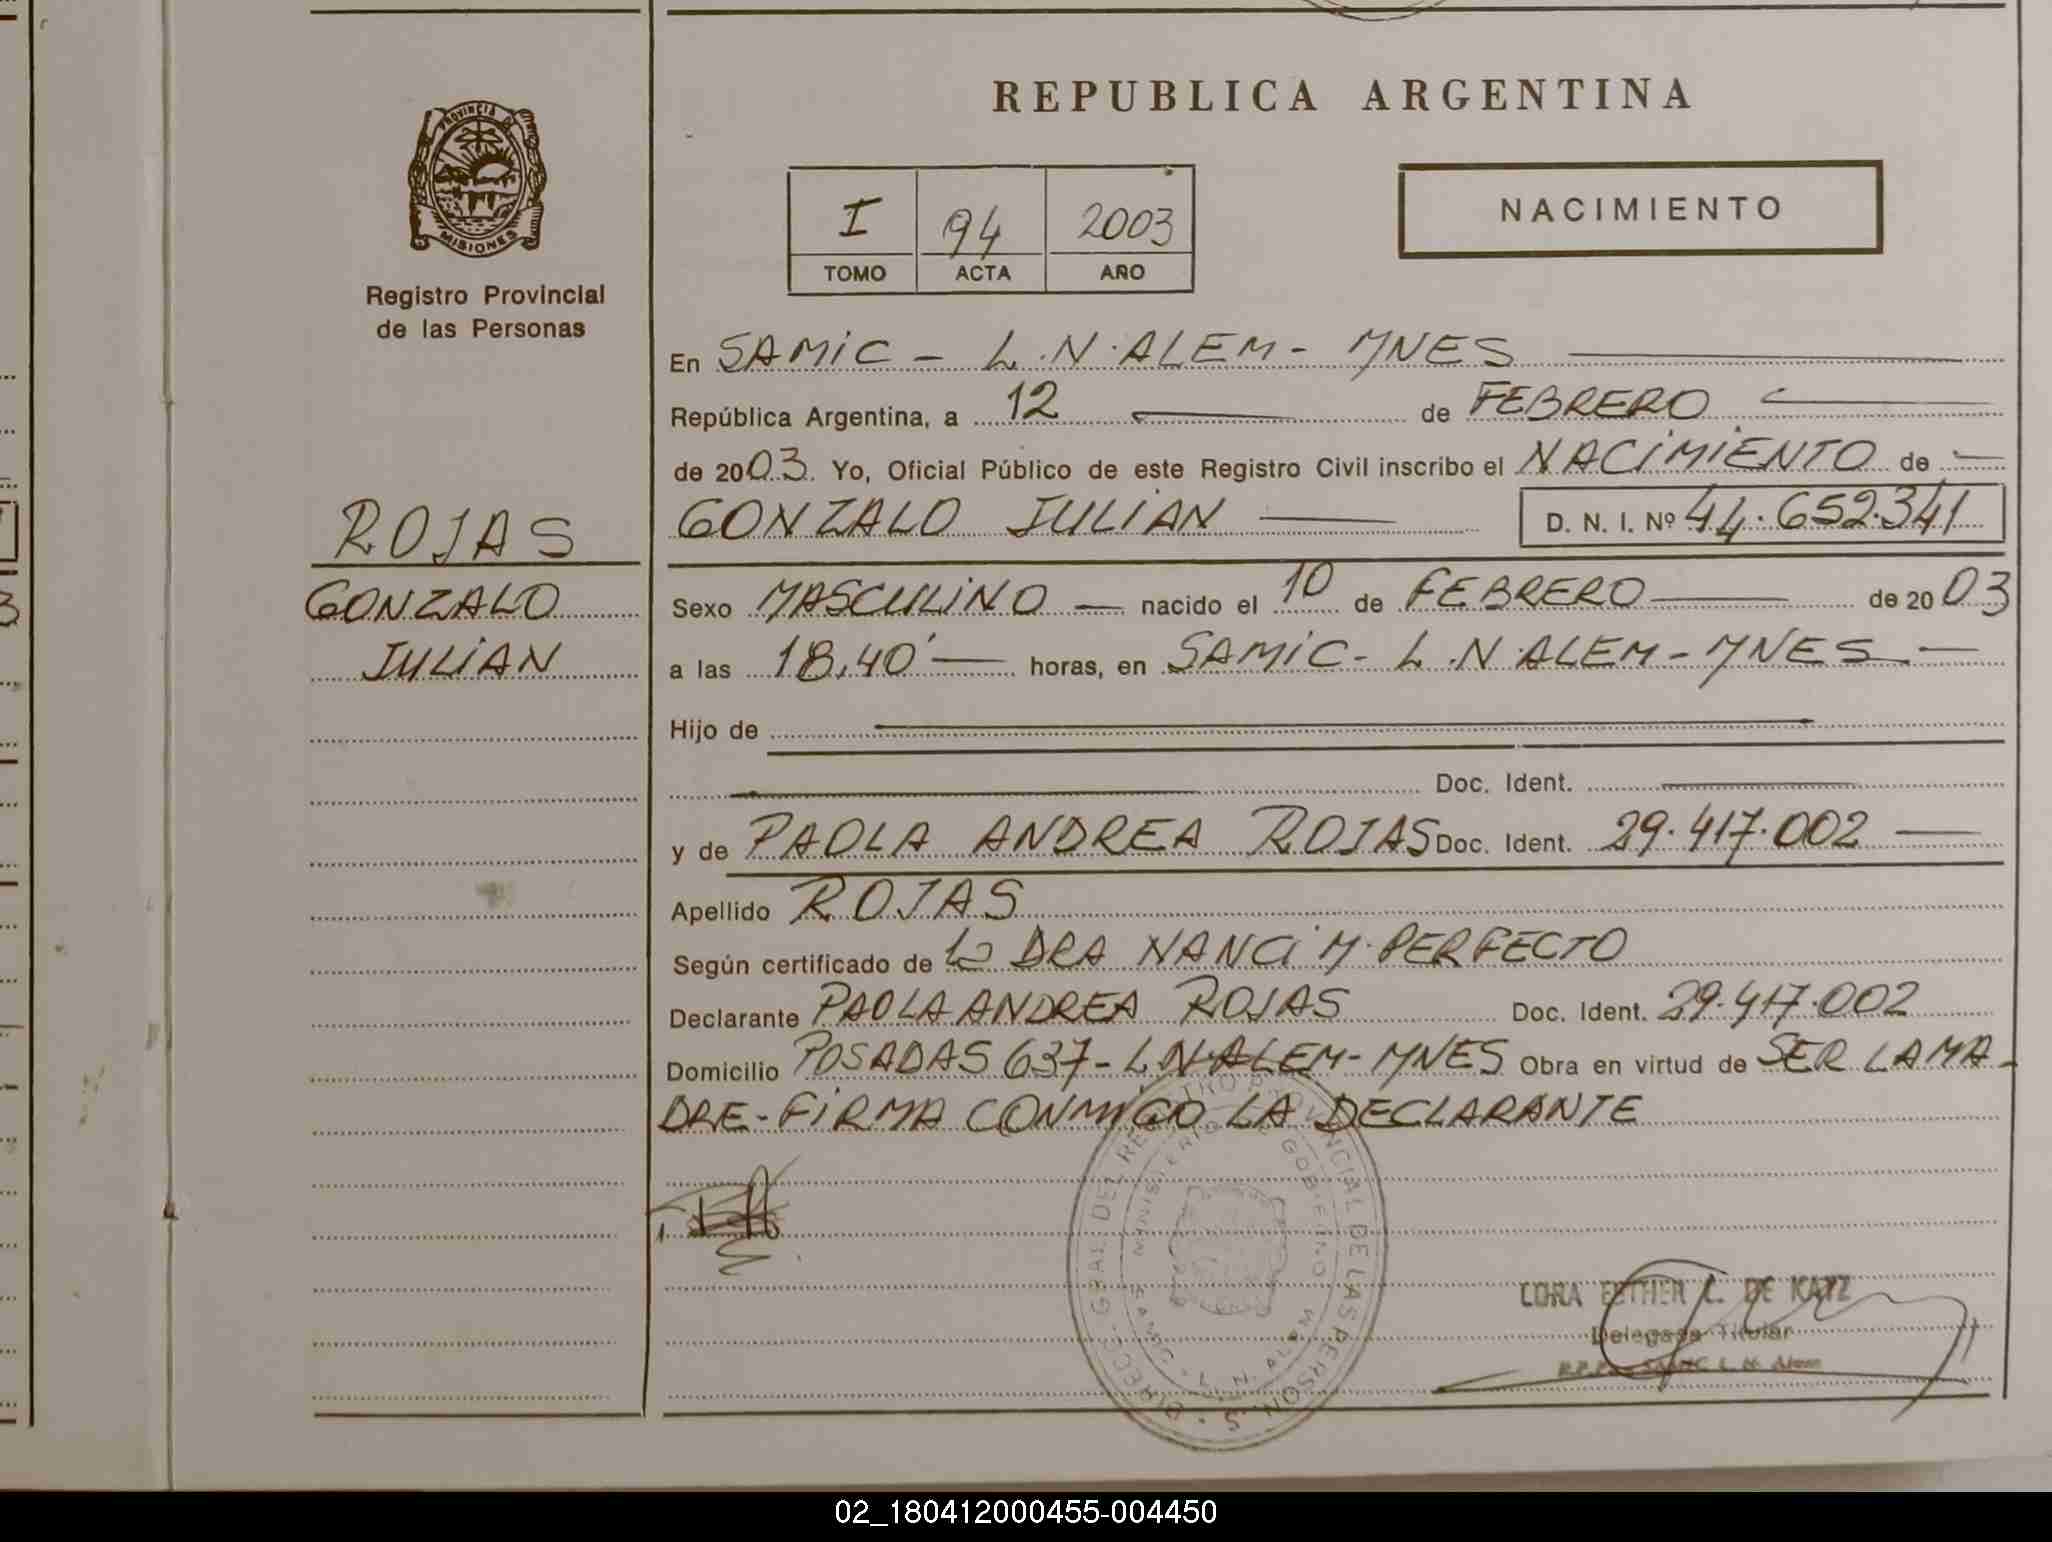 REPUBLICA ARGENTINA
PROVINCIA DE
MISIONES
Registro Provincial
de las Personas
I 94 2003
TOMO ACTA AÑO
NACIMIENTO
En SAMIC - L.N.ALEM - MNES
República Argentina, a 12 de FEBRERO
de 2003. Yo, Oficial Público de este Registro Civil inscribo el NACIMIENTO de
GONZALO JULIAN D. N. I. Nº 44.652.341
ROJAS
GONZALO
JULIAN
Sexo MASCULINO nacido el 10 de FEBRERO de 2003
a las 18,40' horas, en SAMIC - L.N.ALEM - MNES
Hijo de
Doc. Ident.
y de PAOLA ANDREA ROJAS Doc. Ident. 29.417.002
Apellido ROJAS
Según certificado de la DRA NANCI M. PERFECTO
Declarante PAOLA ANDREA ROJAS Doc. Ident. 29.417.002
Domicilio POSADAS 637 - L.N.ALEM - MNES Obra en virtud de SER LA MA-
DRE - FIRMA CONMIGO LA DECLARANTE
DIRECC. GRAL. DEL REGISTRO PROVINCIAL DE LAS PERSONAS
MINISTERIO DE GOBIERNO
SAMIC - L. N. ALEM
CORA ESTHER L. DE KATZ
Delegada Titular
SAMIC L. N. Alem
02_180412000455-004450